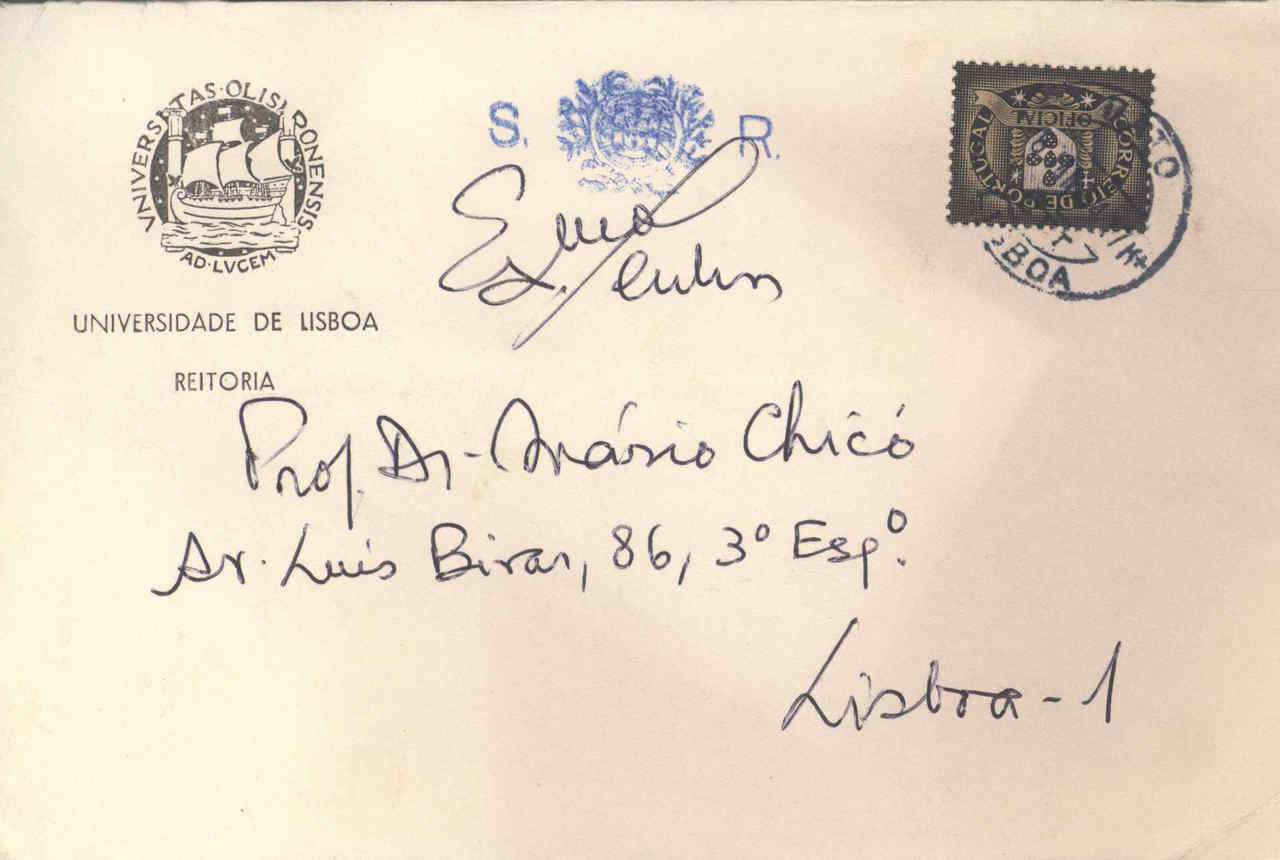 VNIVERSITAS·OLISIPONENSIS
AD·LVCEM
UNIVERSIDADE DE LISBOA
REITORIA
S. R.
CORREIO DE PORTUGAL
OFICIAL
LISBOA
Exmo
Senhor
Prof. Dr. Mário Chicó
Av. Luis Bivar, 86, 3º Esqº.
Lisboa-1